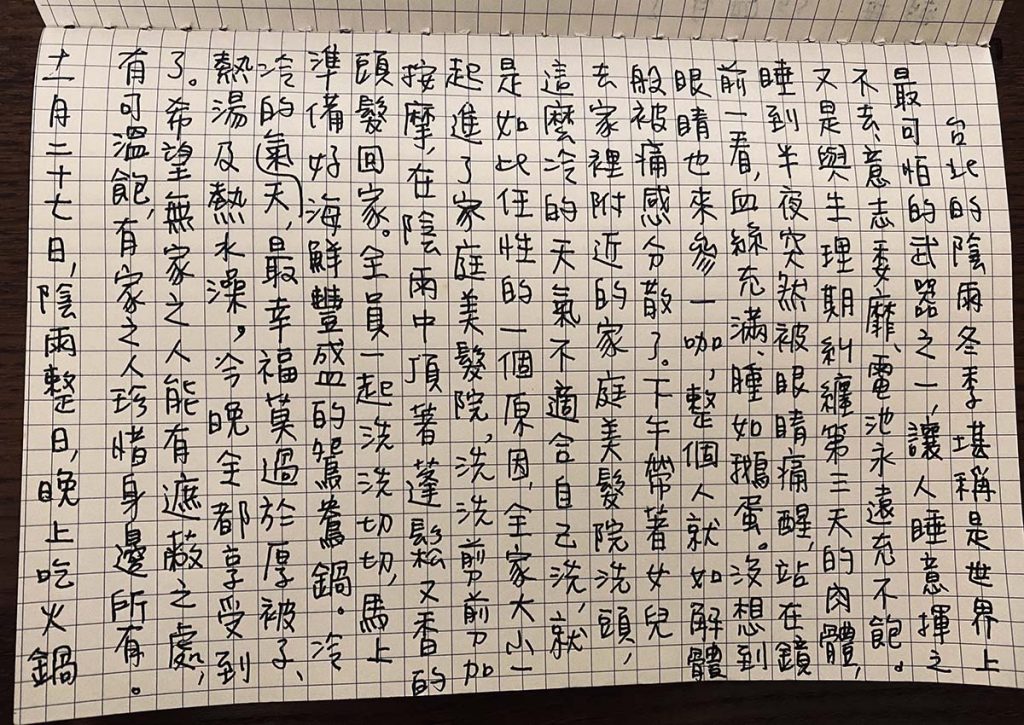 台北的陰雨冬季堪稱是世界上
最可怕的武器之一,讓人睡意揮之
不去、意志委靡、電池永遠充不飽。
又是與生理期糾纏第三天的肉體,
睡到半夜突然被眼睛痛醒,站在鏡
前一看,血絲充滿、腫如鵝蛋。沒想到
眼睛也來參一咖,整個人就如解體
般被痛感分散了。下午帶著女兒
去家裡附近的家庭美髮院洗頭,
這麼冷的天氣不適合自己洗,就
是如此任性的一個原因,全家大小一
起進了家庭美髮院,洗洗剪剪加
按摩,在陰雨中頂著蓬鬆又香的
頭髮回家。全員一起洗洗切切,馬上
準備好海鮮豐盛的鴛鴦鍋。冷
冷的氣天,最幸福莫過於厚被子、
熱湯及熱水澡,今晚全都享受到
了。希望無家之人能有遮蔽之處,
有可溫飽,有家之人珍惜身邊所有。
十一月二十七日,陰雨整日,晚上吃火鍋